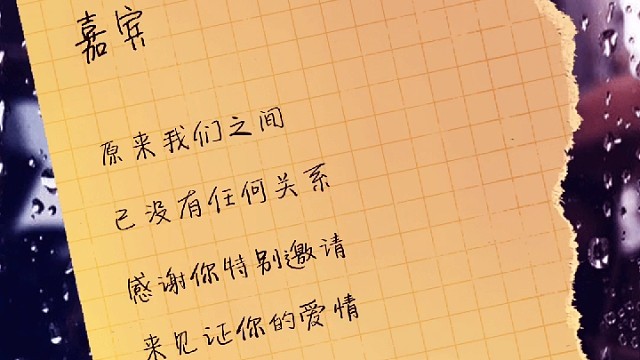 嘉宾
原来我们之间
已没有任何关系
感谢你特别邀请
来见证你的爱情